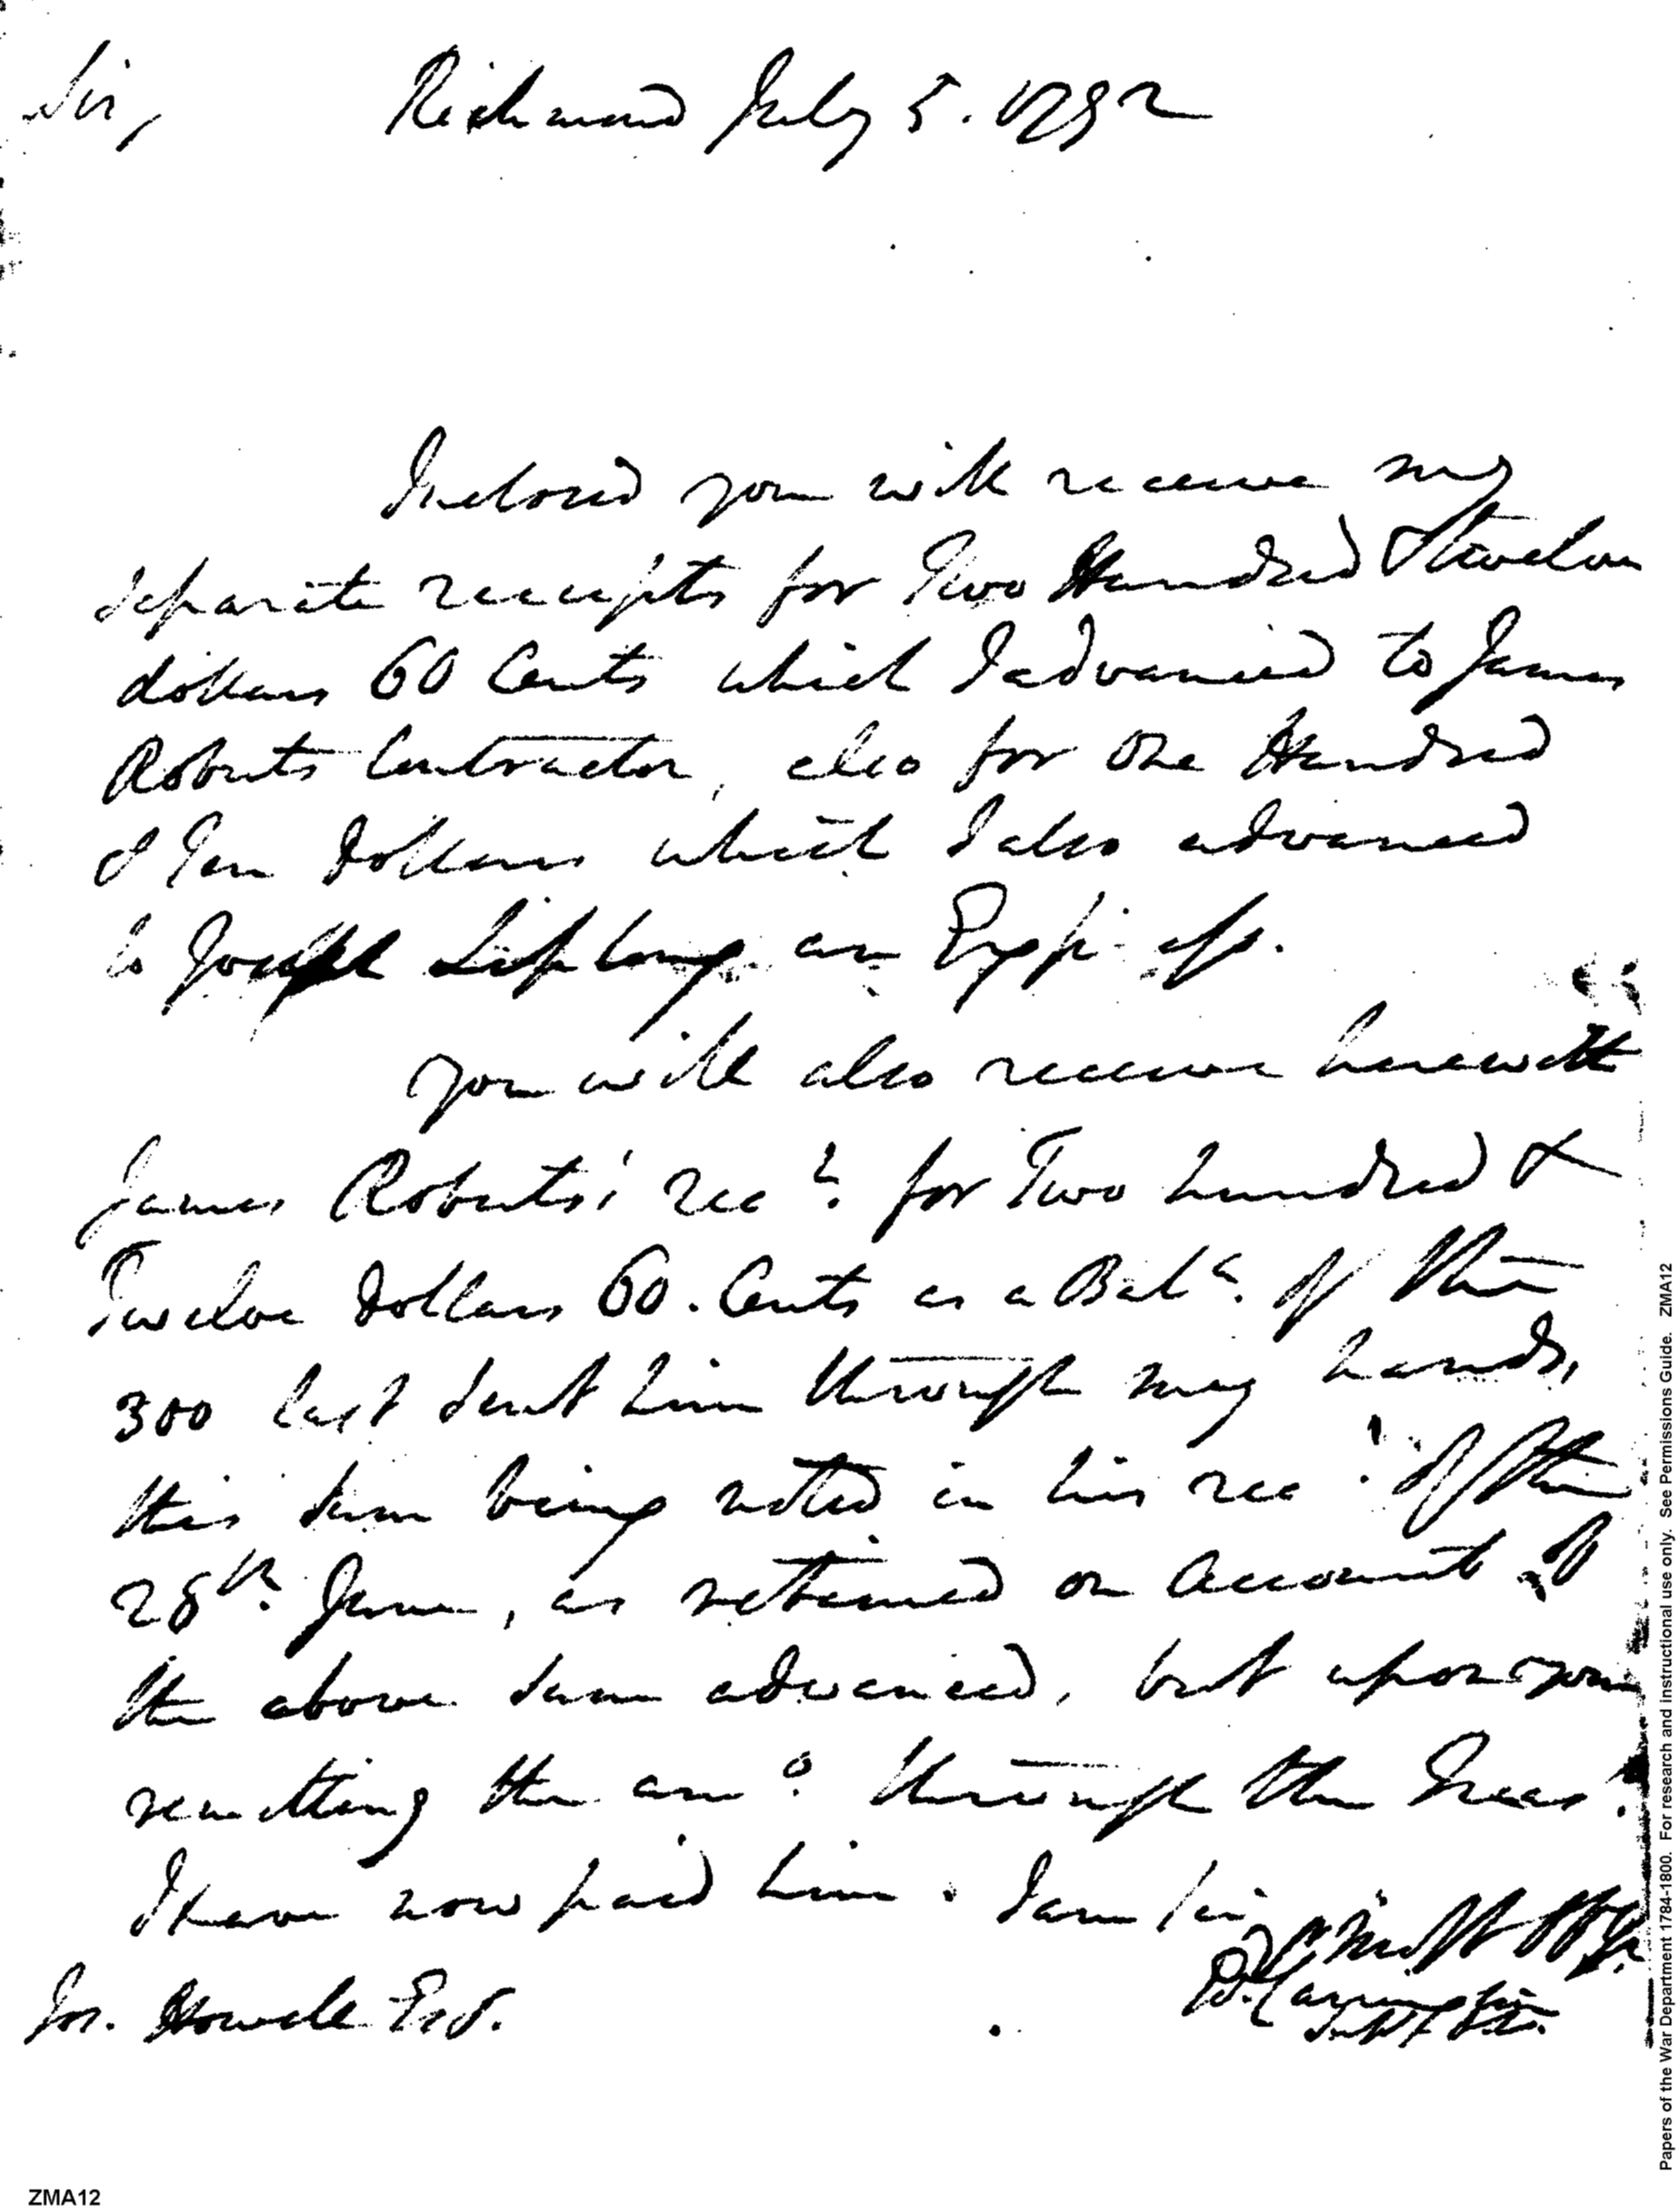 Sir,    Richmond July 5. 1792
Inclosed you will receive my
separate receipts for Two Hundred & twelve
dollars 60 Cents which I advanced to James
Roberts Contractor, also for One Hundred
& Ten Dollars which I also advanced
to Joseph an
you will also receive herewith
James Roberts' rect. for Two hundred &
Twelve Dollars 60. Cents as a Bala. of the
300 last sent him through my hands,
this sum being noted in his rect. of the
28th. June, as retained on account of
the above sum advanced, but upon your
remitting the amo. through the Treas.
I have now paid him. I am Sir
Jos. Howell Esq.
Carrington
ZMA12
Papers of the War Department 1784-1800. For research and instructional use only. See Permissions Guide. ZMA12